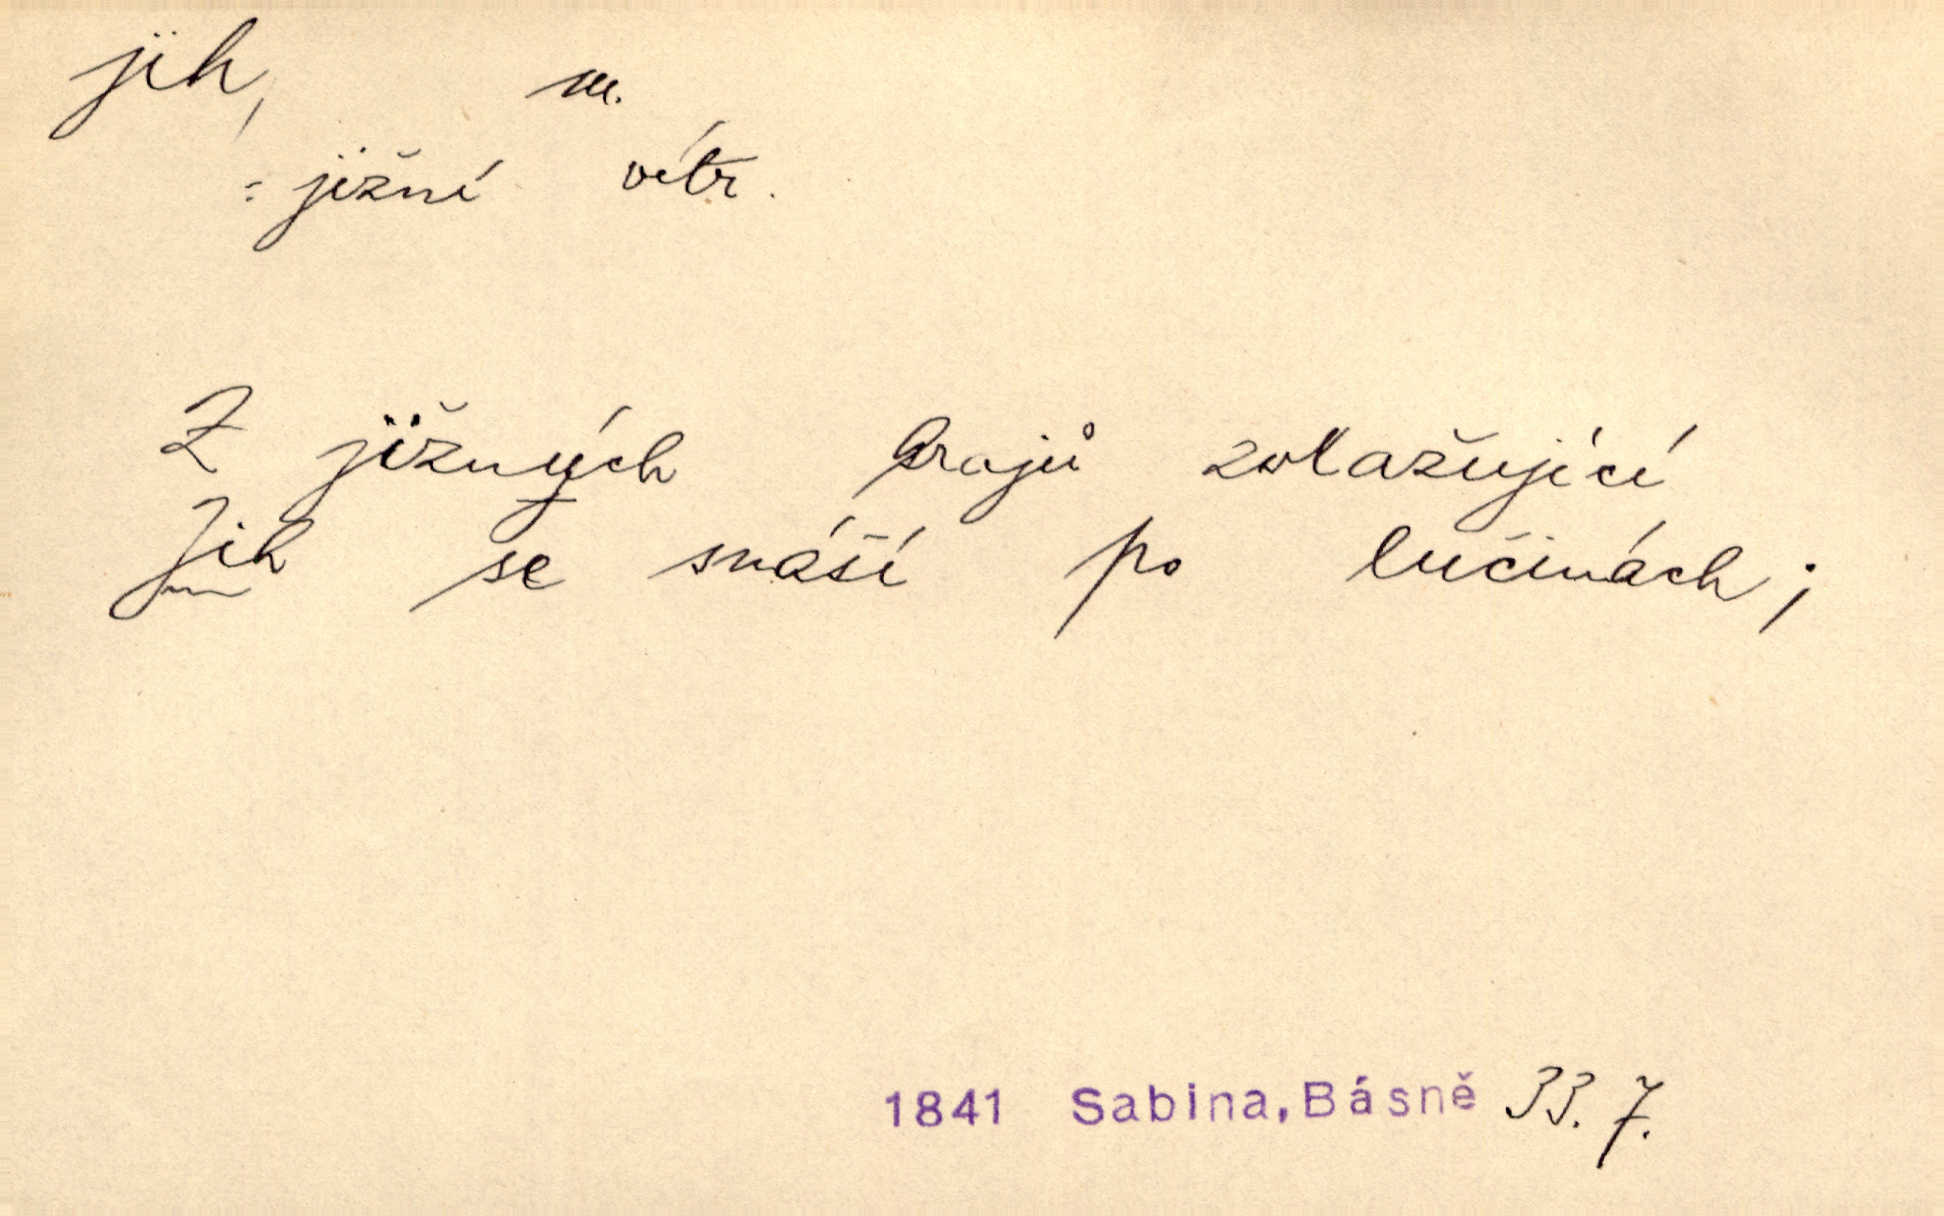 jih, m.
= jižní vítr.
Z jižných krajů zvlažující
Jih se snáší po lučinách;
1841 Sabina, Básně 33. 7.